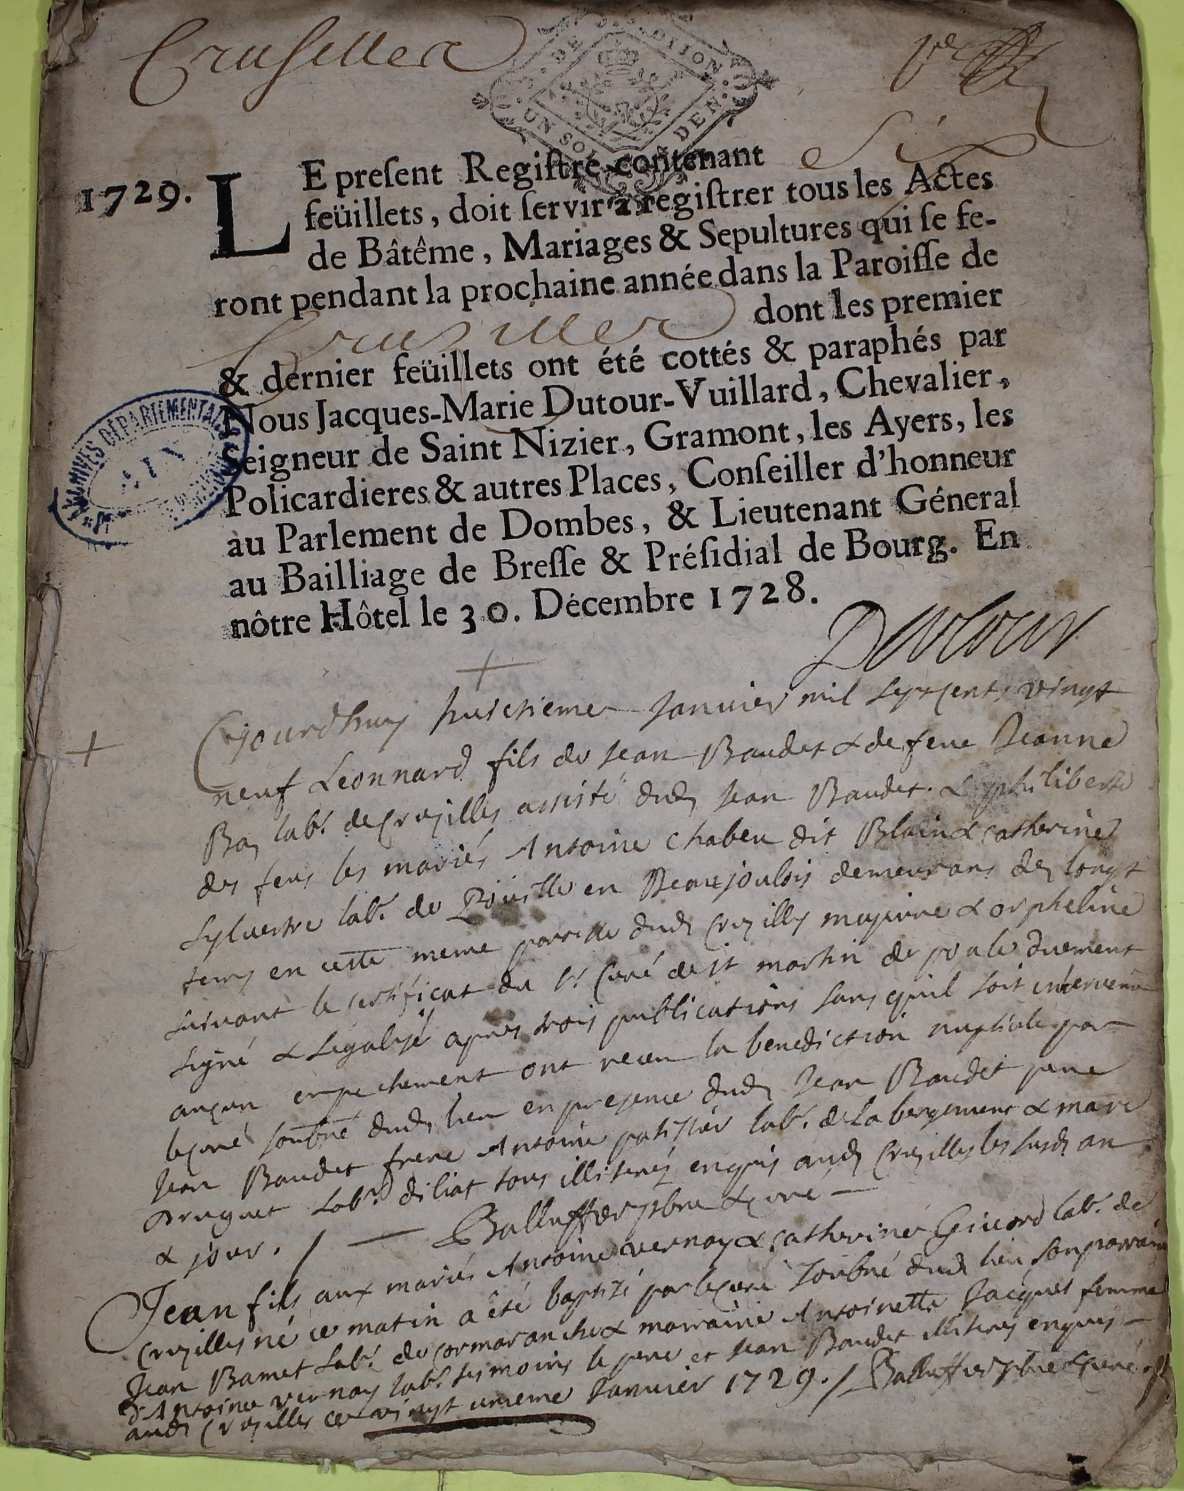 Cruseilles
DE DIJON
UN SOL DEN.
Six
1729. LE preſent Regiſtre contenant
feüillets, doit ſervir à regiſtrer tous les Actes
de Bâtême, Mariages & Sepultures qui ſe fe-
ront pendant la prochaine année dans la Paroiſſe de
dont les premier
& dernier feüillets ont été cottés & paraphés par
Nous Jacques-Marie Dutour-Vuillard, Chevalier,
Seigneur de Saint Nizier, Gramont, les Ayers, les
Policardieres & autres Places, Conſeiller d'honneur
au Parlement de Dombes, & Lieutenant Géneral
au Bailliage de Breſſe & Préſidial de Bourg. En
nôtre Hôtel le 30. Décembre 1728.
ARCHIVES DEPARTEMENTALES
AIN
Dutour
Cejourdhuy huictieme Janvier mil sept cents vingt
neuf Leonnard fils de Jean Baudet & de feue Jeanne
Bay lab.r de Cruzilles assisté dud. Jean Baudet & philiberte
des feus les mariés Antoine Chabeu dit Blain & Catherine
Sylvestre lab.r de en Beaujoulois demeurans de longt
tems en cette meme parroisse dud. Cruzilles majeure & orpheline
suivant le certificat du Sr Curé de St martin de duement
signé & Légalisé apres trois publications sans qu'il soit intervenu
auçun empechement ont receu la benediction nuptiale par
le curé soubné dud. lieu en presence dud. Jean Baudet pere
Jean Baudet frere Antoine patissier lab.r de La bergement & marc
Bruguet Lab.r diliat tous illiterés enquis aud. Cruzilles les susd. an
& jour. / — Balluffier pbre & curé —
Jean fils aux mariés Antoine vernay & Catherine Givord lab.r de
Cruzilles né ce matin a été baptizé par le curé soubné dud. lieu son parrain
Jean Bamet Lab.r de Cormaranche & marraine Antoinette Jacquet femme
d'Antoine vernay lab.r tesmoins le pere et Jean Baudet illiterés enquis
aud. Cruzilles ce vingt unieme Janvier 1729. / Balluffier pbre & curé